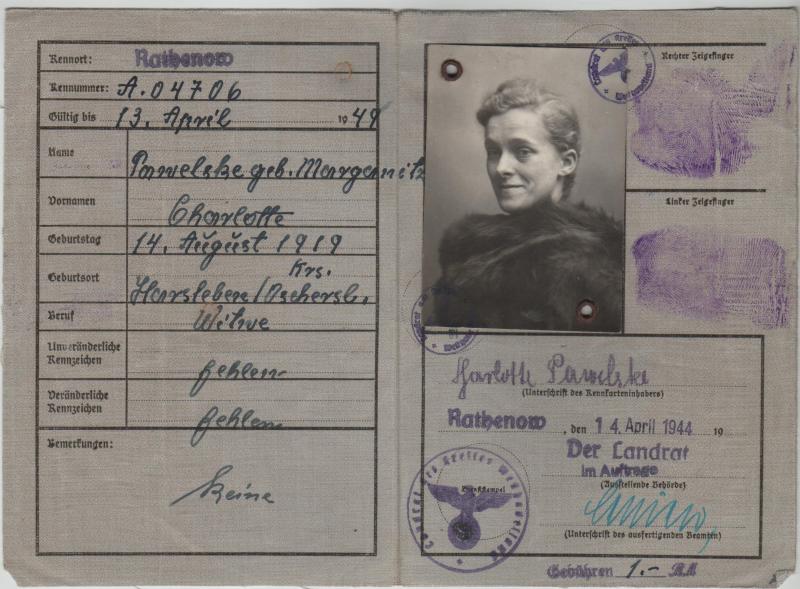 Kennort: Rathenow
Kennnummer: A.04706
Gültig bis 13. April 1949
Name
Pawelske geb. Marganitz
Vornamen
Charlotte
Geburtstag 14. August 1919
Krs.
Geburtsort
Harsleben/Oschersl.
Beruf Witwe
Unveränderliche
Kennzeichen fehlen
Veränderliche
Kennzeichen fehlen
Bemerkungen:
Keine
Rechter Zeigefinger
Linker Zeigefinger
Charlotte Pawelske
(Unterschrift des Kennkarteninhabers)
Rathenow, den 14. April 1944 19
Der Landrat
im Auftrage
(Ausstellende Behörde)
Dienststempel
Landrat des Kreises Westhavelland
(Unterschrift des ausfertigenden Beamten)
Gebühren 1.- RM